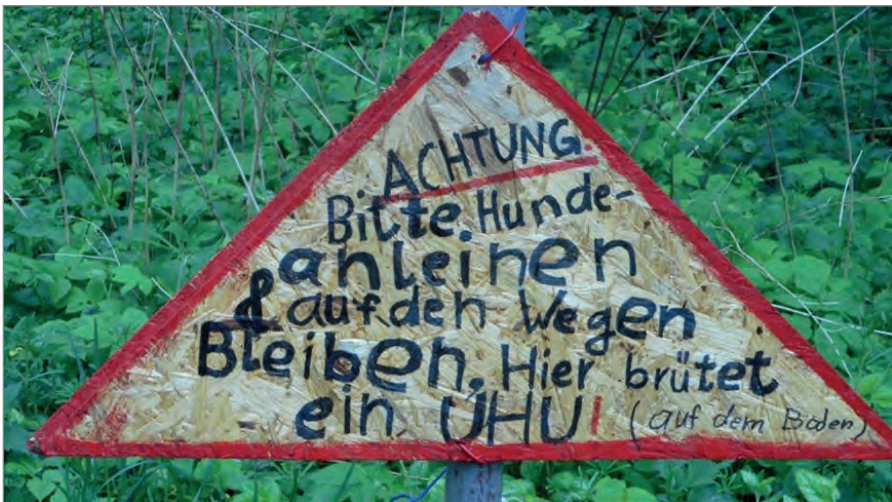 ACHTUNG.
Bitte Hunde-
anleinen
& auf den Wegen
Bleiben. Hier brütet
ein UHU! (auf dem Boden)